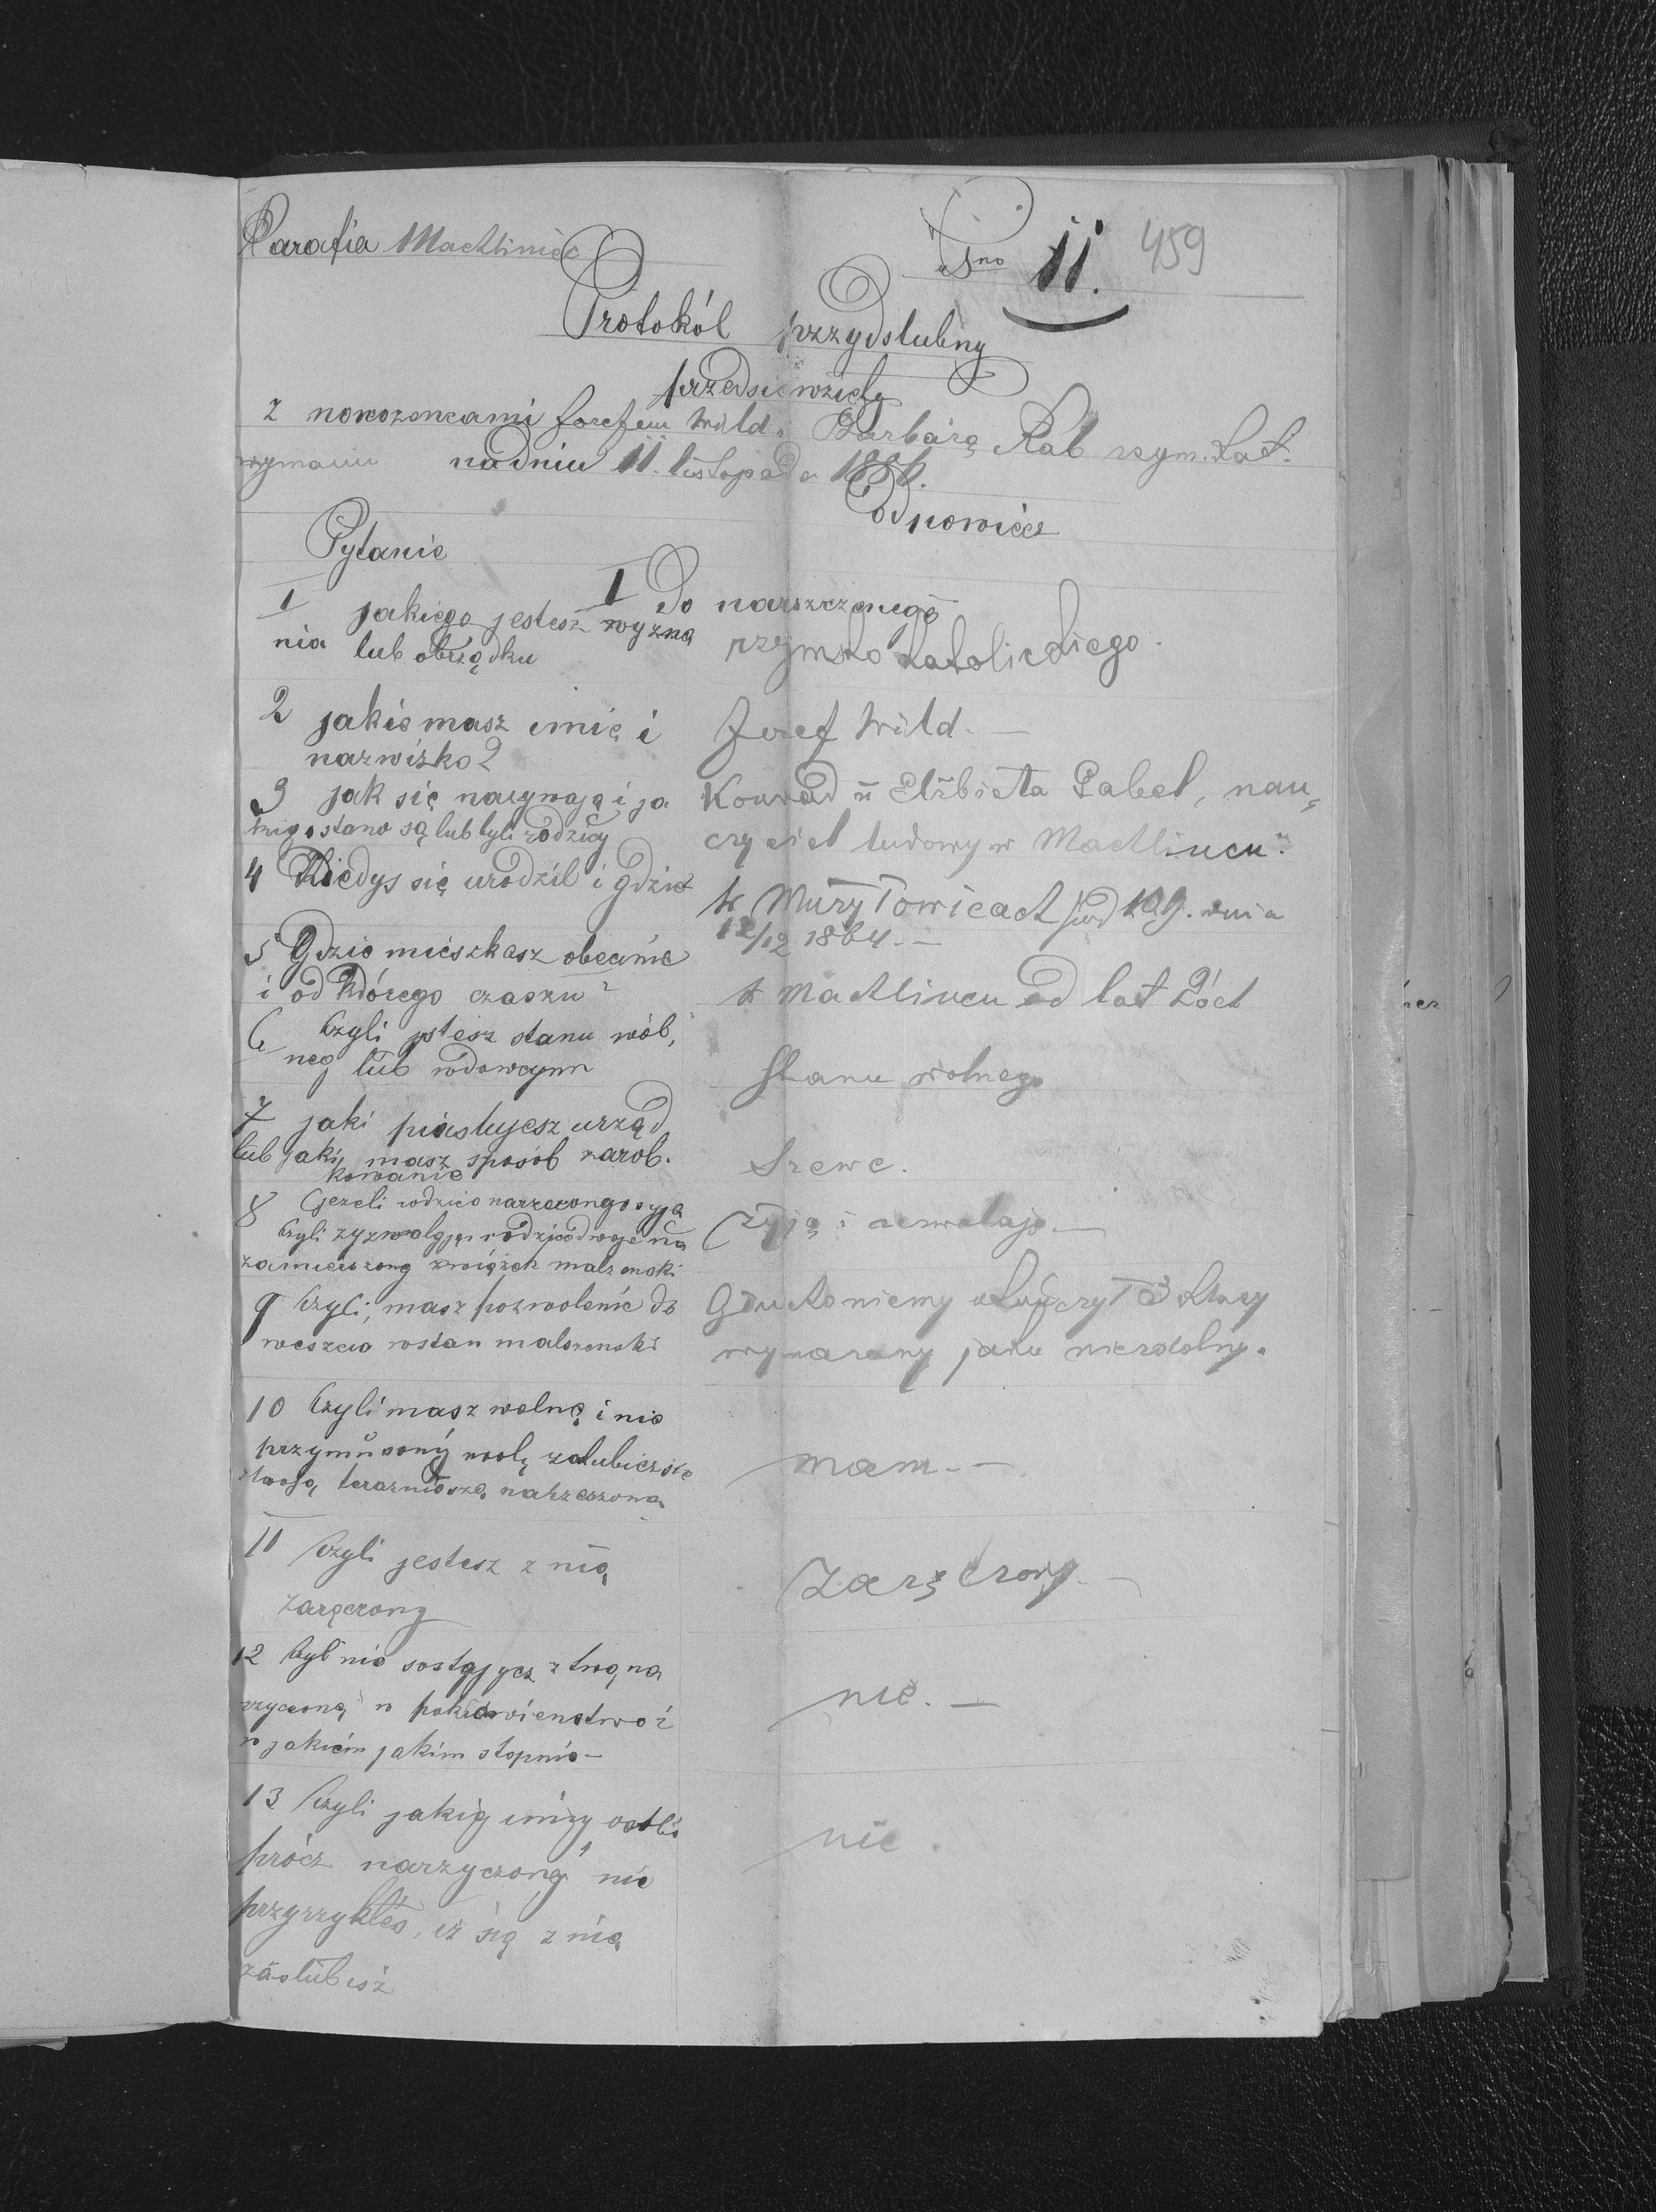 Parafia Machliniec
Nro 11. 459
Protokół przydslubny
przedsiewziety
z nowozencami Josefem Wild i Barbarą Rab rzym. kat.
wyznania na dniu 11. listopada 188
Pytanie Odpowiedz
I Do narzeczonego
1 jakiego jestesz wyzna
nia lub obrządku
rzymsko katolickiego.
2 jakie masz imię i
nazwisko?
Josef Wild. —
3 jak się nazywają i ja
kiego stanu są lub byli rodzicy
Konrad u Elżbieta Pabel, nau,
czyciel ludowy w Machlincu.
4 Kiedys się urodzil i gdzie
W Muzyłowicach pod 109. dnia
12/12 1864. —
5 Gdzie mieszkasz obecnie
i od którego czaszu?
W Machlincu od lat 2óch
6 Czyli jestesz stanu wól,
neg lub wdowcynn
Stanu wolnego
7 jaki piastujesz urząd
lub jaki masz sposób zarob.
kowanie
Szewc.
8 Jezeli rodzice narzeczongo zyja
Czyli zyzwalają rodzice twoje na
zamierzony związek malzenski
Żyją i zezwalają. —
9 Czyli, masz pozwolenie do
weszcia wstan malzenski
Gdyż w 3 klasy
wymazany jako niezdolny.
10 Czyli masz wolną i nie
przymusoną wolę zalubiczsie
z twoją terazniosze, narzeszoną
mam. —
11 Czyli jestesz z nią
zaręczony
Zaręczony. —
12 Czyli nie sostajesz z twą na
rzyczoną w pokrewienstwo i
w jakiem jakim stopnio —
nie. —
13 Czyli jakiej inszy osobi
prócz narzyczonej nie
przyrzykłes, iz się z nią
zaslubisz
nie.